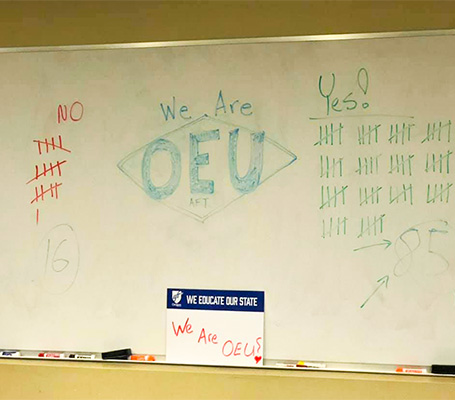 NO
16
We Are
OEU
AFT
Yes!
85
WE EDUCATE OUR STATE
We Are OEU!